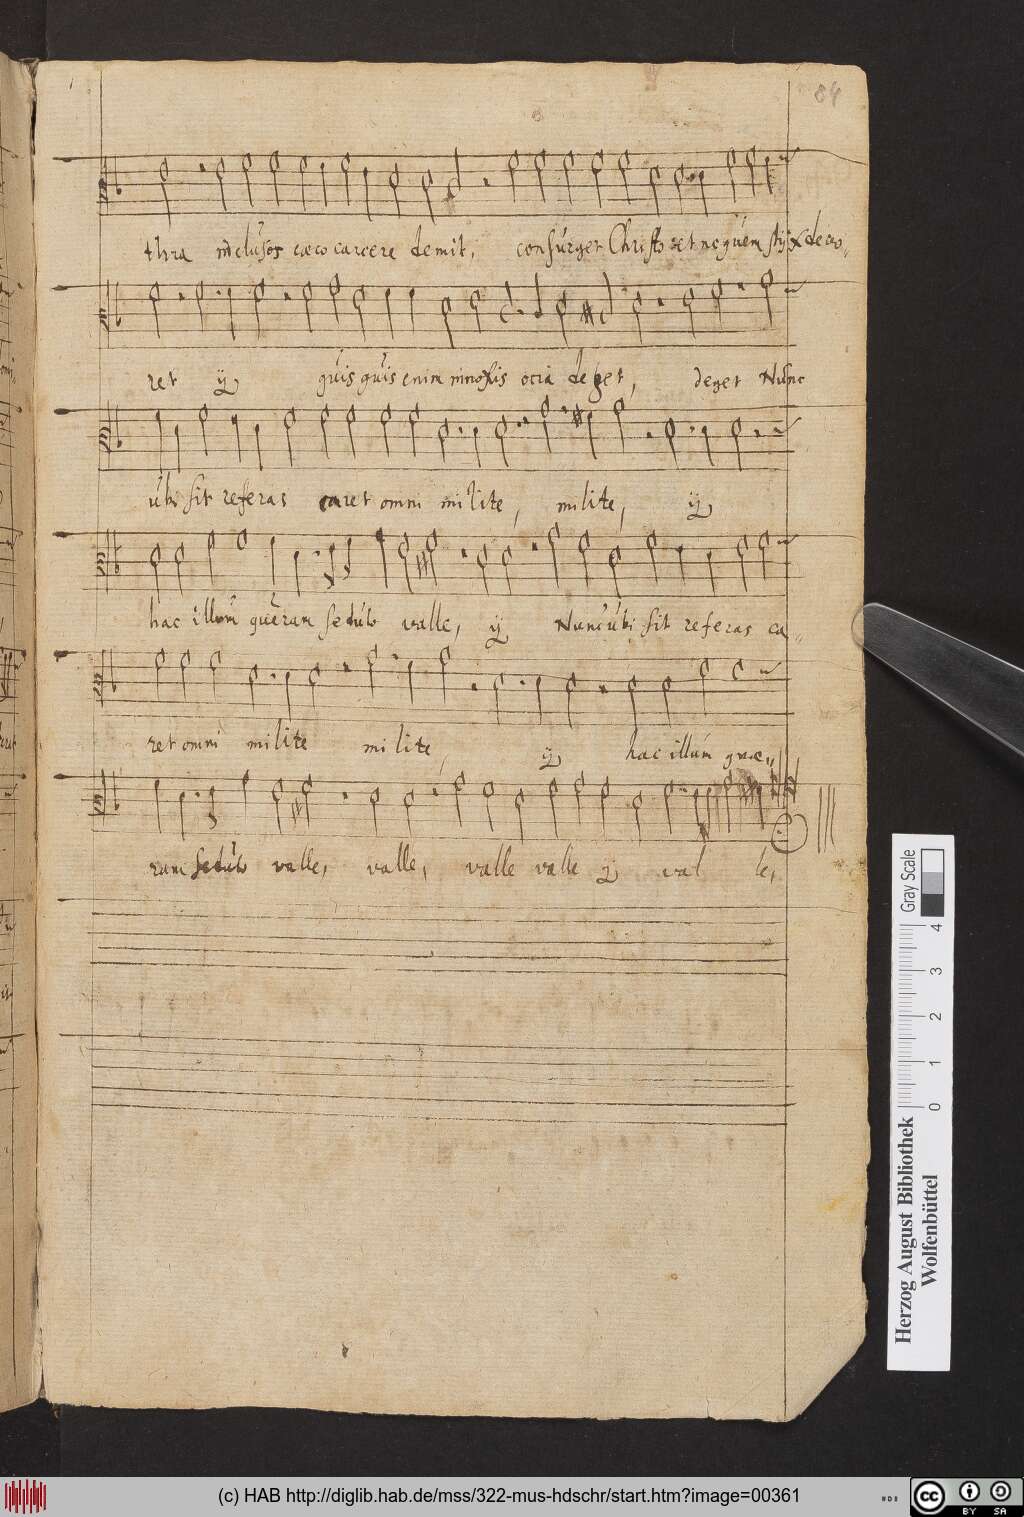 84
thra inclusos cæco carcere demit, consurget Christo
ret ij quis quis enim ocia deget, deget Nunc
ubi sit referas caret omni milite, milite, ij
hac illum queram sedulo valle, ij Nunc ubi sit referas ca-
ret omni milite milite, ij hac illum quæ-
ram sedulo valle, valle, valle valle ij val le,
Gray Scale
4
3
2
1
0
Herzog August Bibliothek
Wolfenbüttel
(c) HAB http://diglib.hab.de/mss/322-mus-hdschr/start.htm?image=00361
cc
BY SA